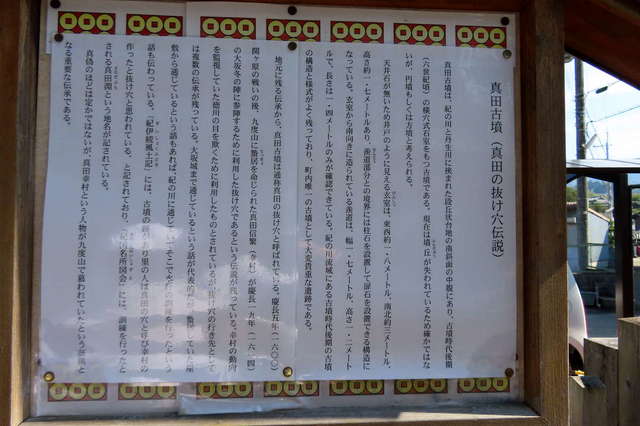 真田古墳(真田の抜け穴伝説)
真田古墳は、紀の川と丹生川に挟まれた段丘状台地の南斜面の中腹にあり、古墳時代後期
(六世紀頃)の横穴式石室をもつ古墳である。現在は墳丘が失われているため確かではな
いが、円墳もしくは方墳と考えられる。
天井石が無いため井戸のように見える玄室は、東西約一・八メートル、南北約三メートル、
高さ約一・七メートルあり、羨道部分との境界には柱石を設置して扉石を設置できる構造に
なっている。玄室から南向きに造られている羨道は、幅一・七メートル、高さ一・二メート
ルで、長さは一・四メートルのみが確認できている。紀の川流域にある古墳時代後期の古墳
の構造と様式がよく残っており、町内唯一の古墳として大変貴重な遺跡である。
地元に残る伝承から、真田古墳は通称真田の抜け穴と呼ばれている。慶長五年(一六〇〇)
関ヶ原の戦いの後、九度山に蟄居を命じられた真田信繁(幸村)が慶長一九年(一六一四)
の大坂冬の陣に参陣するために利用した抜け穴であるという伝説が残っている。幸村の動向
を監視していた徳川の目を欺くために利用したものとされているが、抜け穴の行き先として
は複数の伝承が残っている。大坂城まで通じているという話が代表的だが、蟄居していた屋
敷から通じているという話もあれば、紀の川に通じていてそこで
という
話も伝わっている。「紀伊続風土記」には、古墳の
里の人は真田の穴と呼び幸村の
作ったと抜け穴と思われている、と記されており、
名所図会」には、訓練を行ったと
される真田淵という地名が記されている。
真偽のほどは定かではないが、真田幸村という人物が九度山で慕われていたという
なる重要な伝承である。